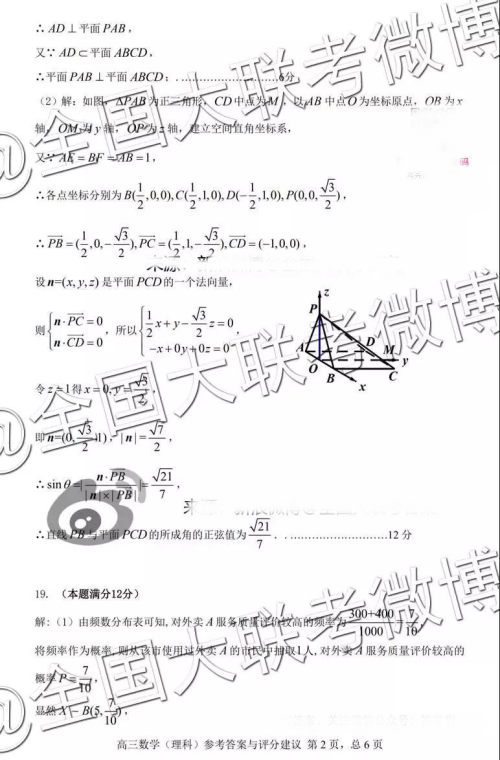 ∴ AD ⊥ 平面 PAB，
又∵ AD ⊂ 平面 ABCD，
∴平面 PAB ⊥ 平面 ABCD；…………………6分
（2）解：如图，△PAB 为正三角形，CD 中点为 M，以 AB 中点 O 为坐标原点，OB 为 x
轴，OM 为 y 轴，OP 为 z 轴，建立空间直角坐标系，
又∵ AE = BF = AB = 1，
∴各点坐标分别为 B(1/2,0,0), C(1/2,1,0), D(-1/2,1,0), P(0,0,√3/2)，
∴ PB = (1/2,0,-√3/2), PC = (1/2,1,-√3/2), CD = (-1,0,0)，
设 n=(x,y,z) 是平面 PCD 的一个法向量，
则 { n·PC = 0 n·CD = 0 ，所以 { 1/2 x + y - √3/2 z = 0 -x + 0y + 0z = 0 ，
z
P
A
D
M
y
O
B
C
x
令 z=1 得 x = 0, y = √3/2，
即 n=(0, √3/2, 1)，| n | = √7/2，
∴ sin θ = | n·PB / | n |×| PB | | = √21/7，
∴直线 PB 与平面 PCD 的所成角的正弦值为 √21/7．…………………12 分
19．（本题满分12分）
解：（1）由频数分布表可知, 对外卖 A 服务质量评价较高的频率为 300+400/1000 = 7/10，
将频率作为概率, 则从该市使用过外卖 A 的市民中抽取1人, 对外卖 A 服务质量评价较高的
概率 P = 7/10，
显然 X ~ B(5, 7/10)，
高三数学（理科）参考答案与评分建议 第 2 页，总 6 页
@全国大联考微博
@全国大联考微博
@全国大联考微博